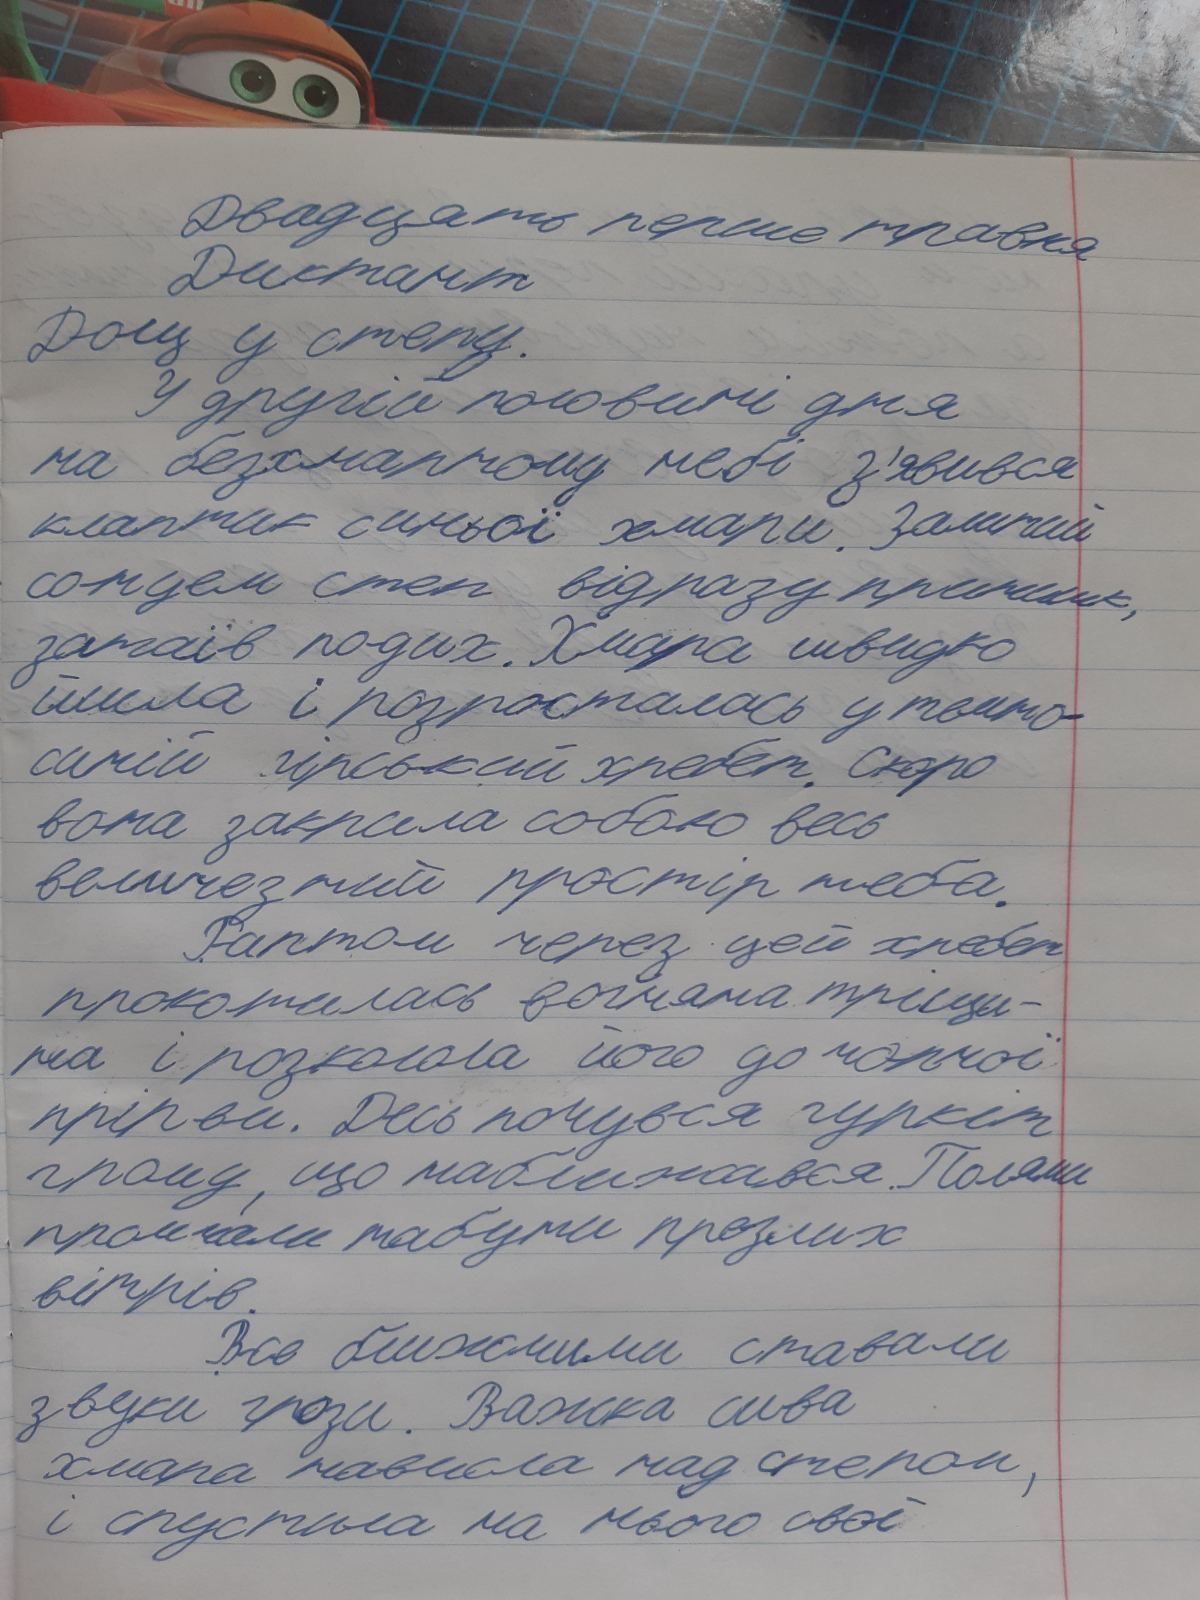 Двадцять перше травня
Диктант
Дощ у степу.
У другій половині дня
на безхмарному небі з'явився
клаптик синьої хмари. Залитий
сонцем степ відразу притих,
затаїв подих. Хмара швидко
йшла і розросталась у темно-
синій гірський хребет. Скоро
вона закрила собою весь
величезний простір неба.
Раптом через цей хребет
прокотилась вогняна тріщи-
на і розколола його до чорної
прірви. Десь почувся гуркіт
грому, що наближався. Полями
промчали табуни презлих
вітрів.
Все ближчими ставали
звуки грози. Важка сива
хмара нависла над степом,
і спустила на нього свої